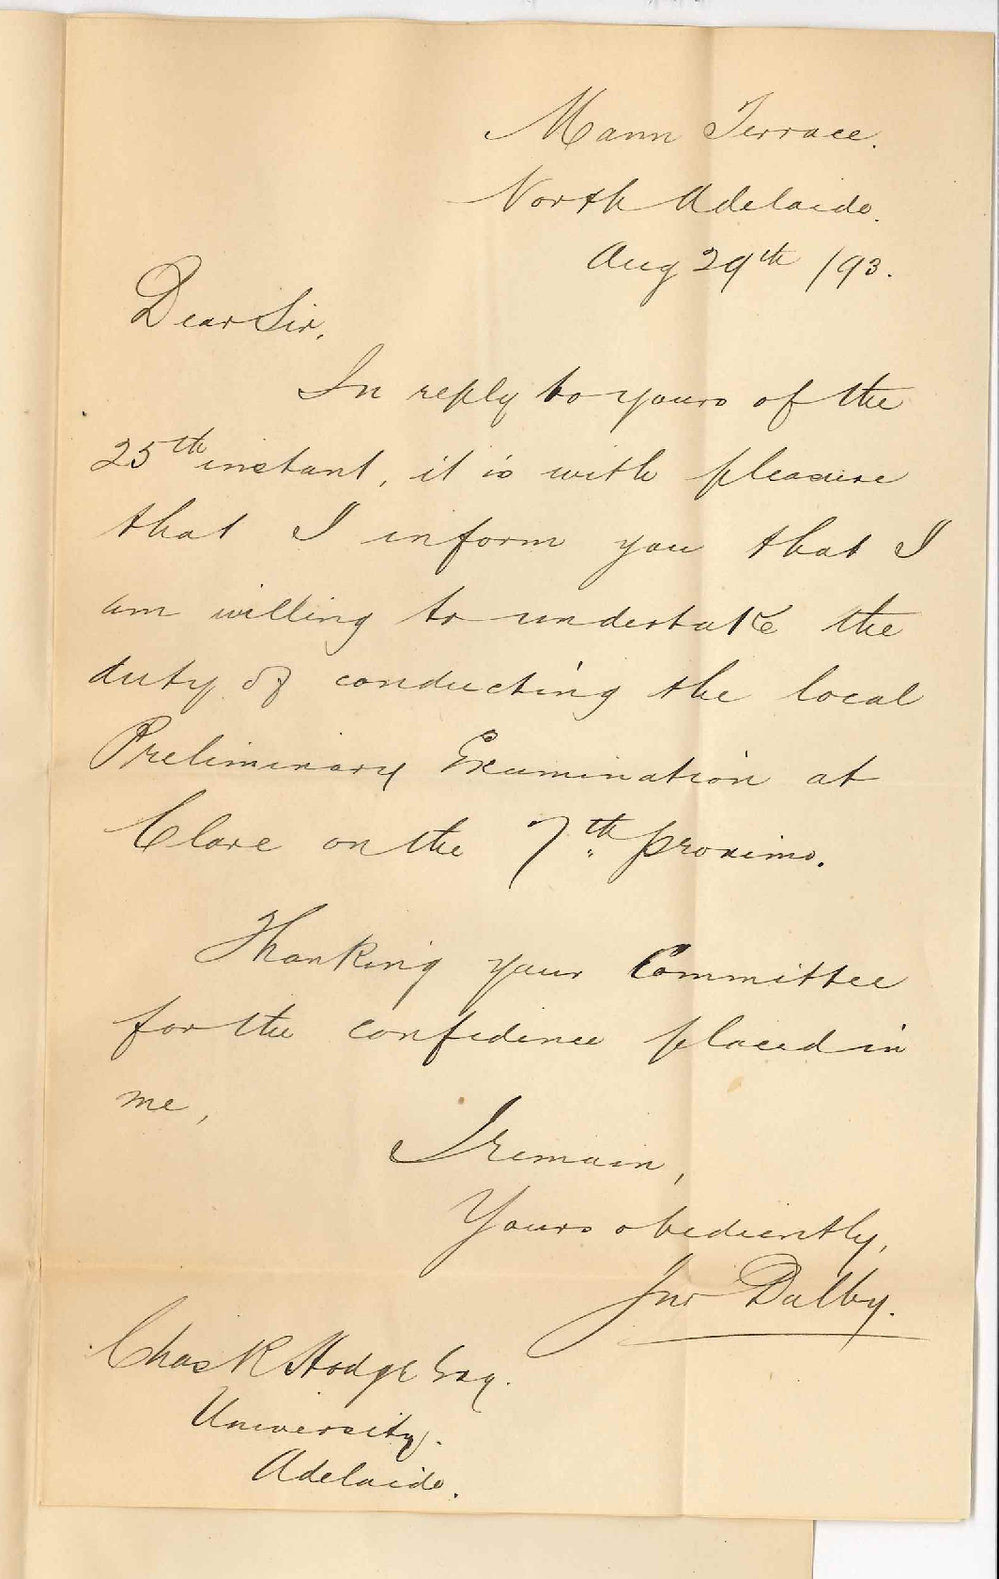 Mann Terrace.
North Adelaide.
Aug 29th /93.
Dear Sir,
In reply to yours of the
25th instant, it is with pleasure
that I inform you that I
am willing to undertake the
duty of conducting the local
Preliminary Examination at
Clare on the 7th proximo.
Thanking your Committee
for the confidence placed in
me,
I remain,
Yours obediently,
Jno Dalby.
Chas R Hodge Esq.
University.
Adelaide.